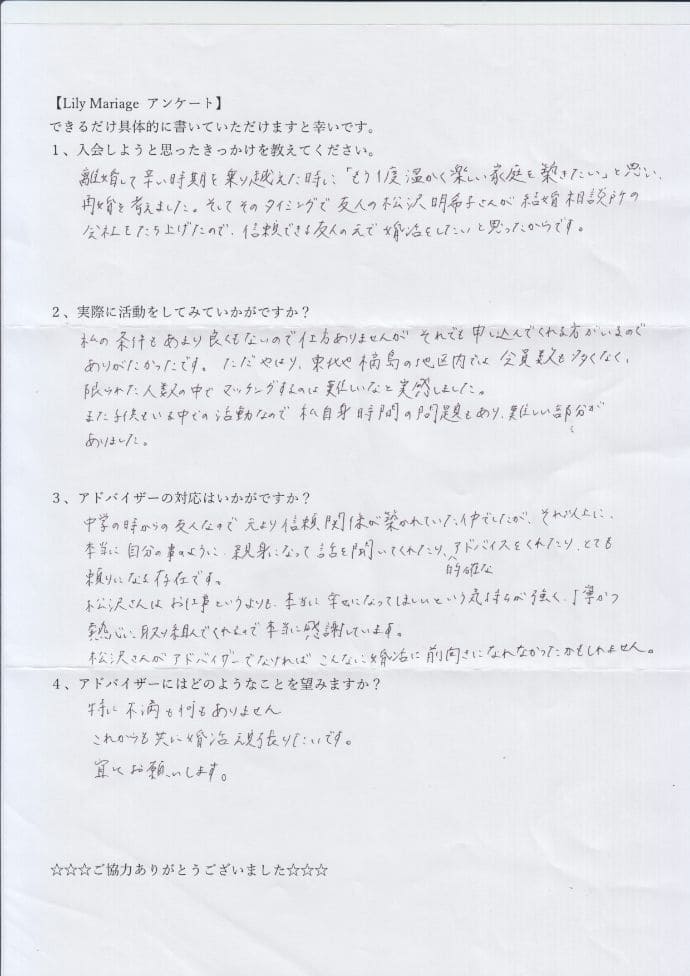 【Lily Mariage アンケート】
できるだけ具体的に書いていただけますと幸いです。
1、入会しようと思ったきっかけを教えてください。
離婚して辛い時期を乗り越えた時に「もう1度温かく楽しい家庭を築きたい」と思い、
再婚を考えました。そしてそのタイミングで友人の松沢明希子さんが結婚相談所の
会社を立ち上げたので、信頼できる友人の元で婚活をしたいと思ったからです。
2、実際に活動をしてみていかがですか？
私の条件もあまり良くもないので仕方ありませんが それでも申し込んでくれる方がいるので
ありがたかったです。ただやはり、東北や福島の地区内では会員数も多くなく、
限られた人数の中でマッチングするのは難しいなと実感しました。
また子供もいる中での活動なので私自身時間の問題もあり、難しい部分が
ありました。
3、アドバイザーの対応はいかがですか？
中学の時からの友人なので元より信頼関係が築かれていた仲でしたが、それ以上に、
本当に自分の事のように親身になって話を聞いてくれたり、的確なアドバイスをくれたり、とても
頼りになる存在です。
松沢さんはお仕事というよりも、本当に幸せになってほしいという気持ちが強く、丁寧かつ
熱心に取り組んでくれるので本当に感謝しています。
松沢さんがアドバイザーでなければこんなに婚活に前向きになれなかったかもしれません。
4、アドバイザーにはどのようなことを望みますか？
特に不満も何もありません
これからも共に婚活頑張りたいです。
宜しくお願いします。
☆☆☆ご協力ありがとうございました☆☆☆